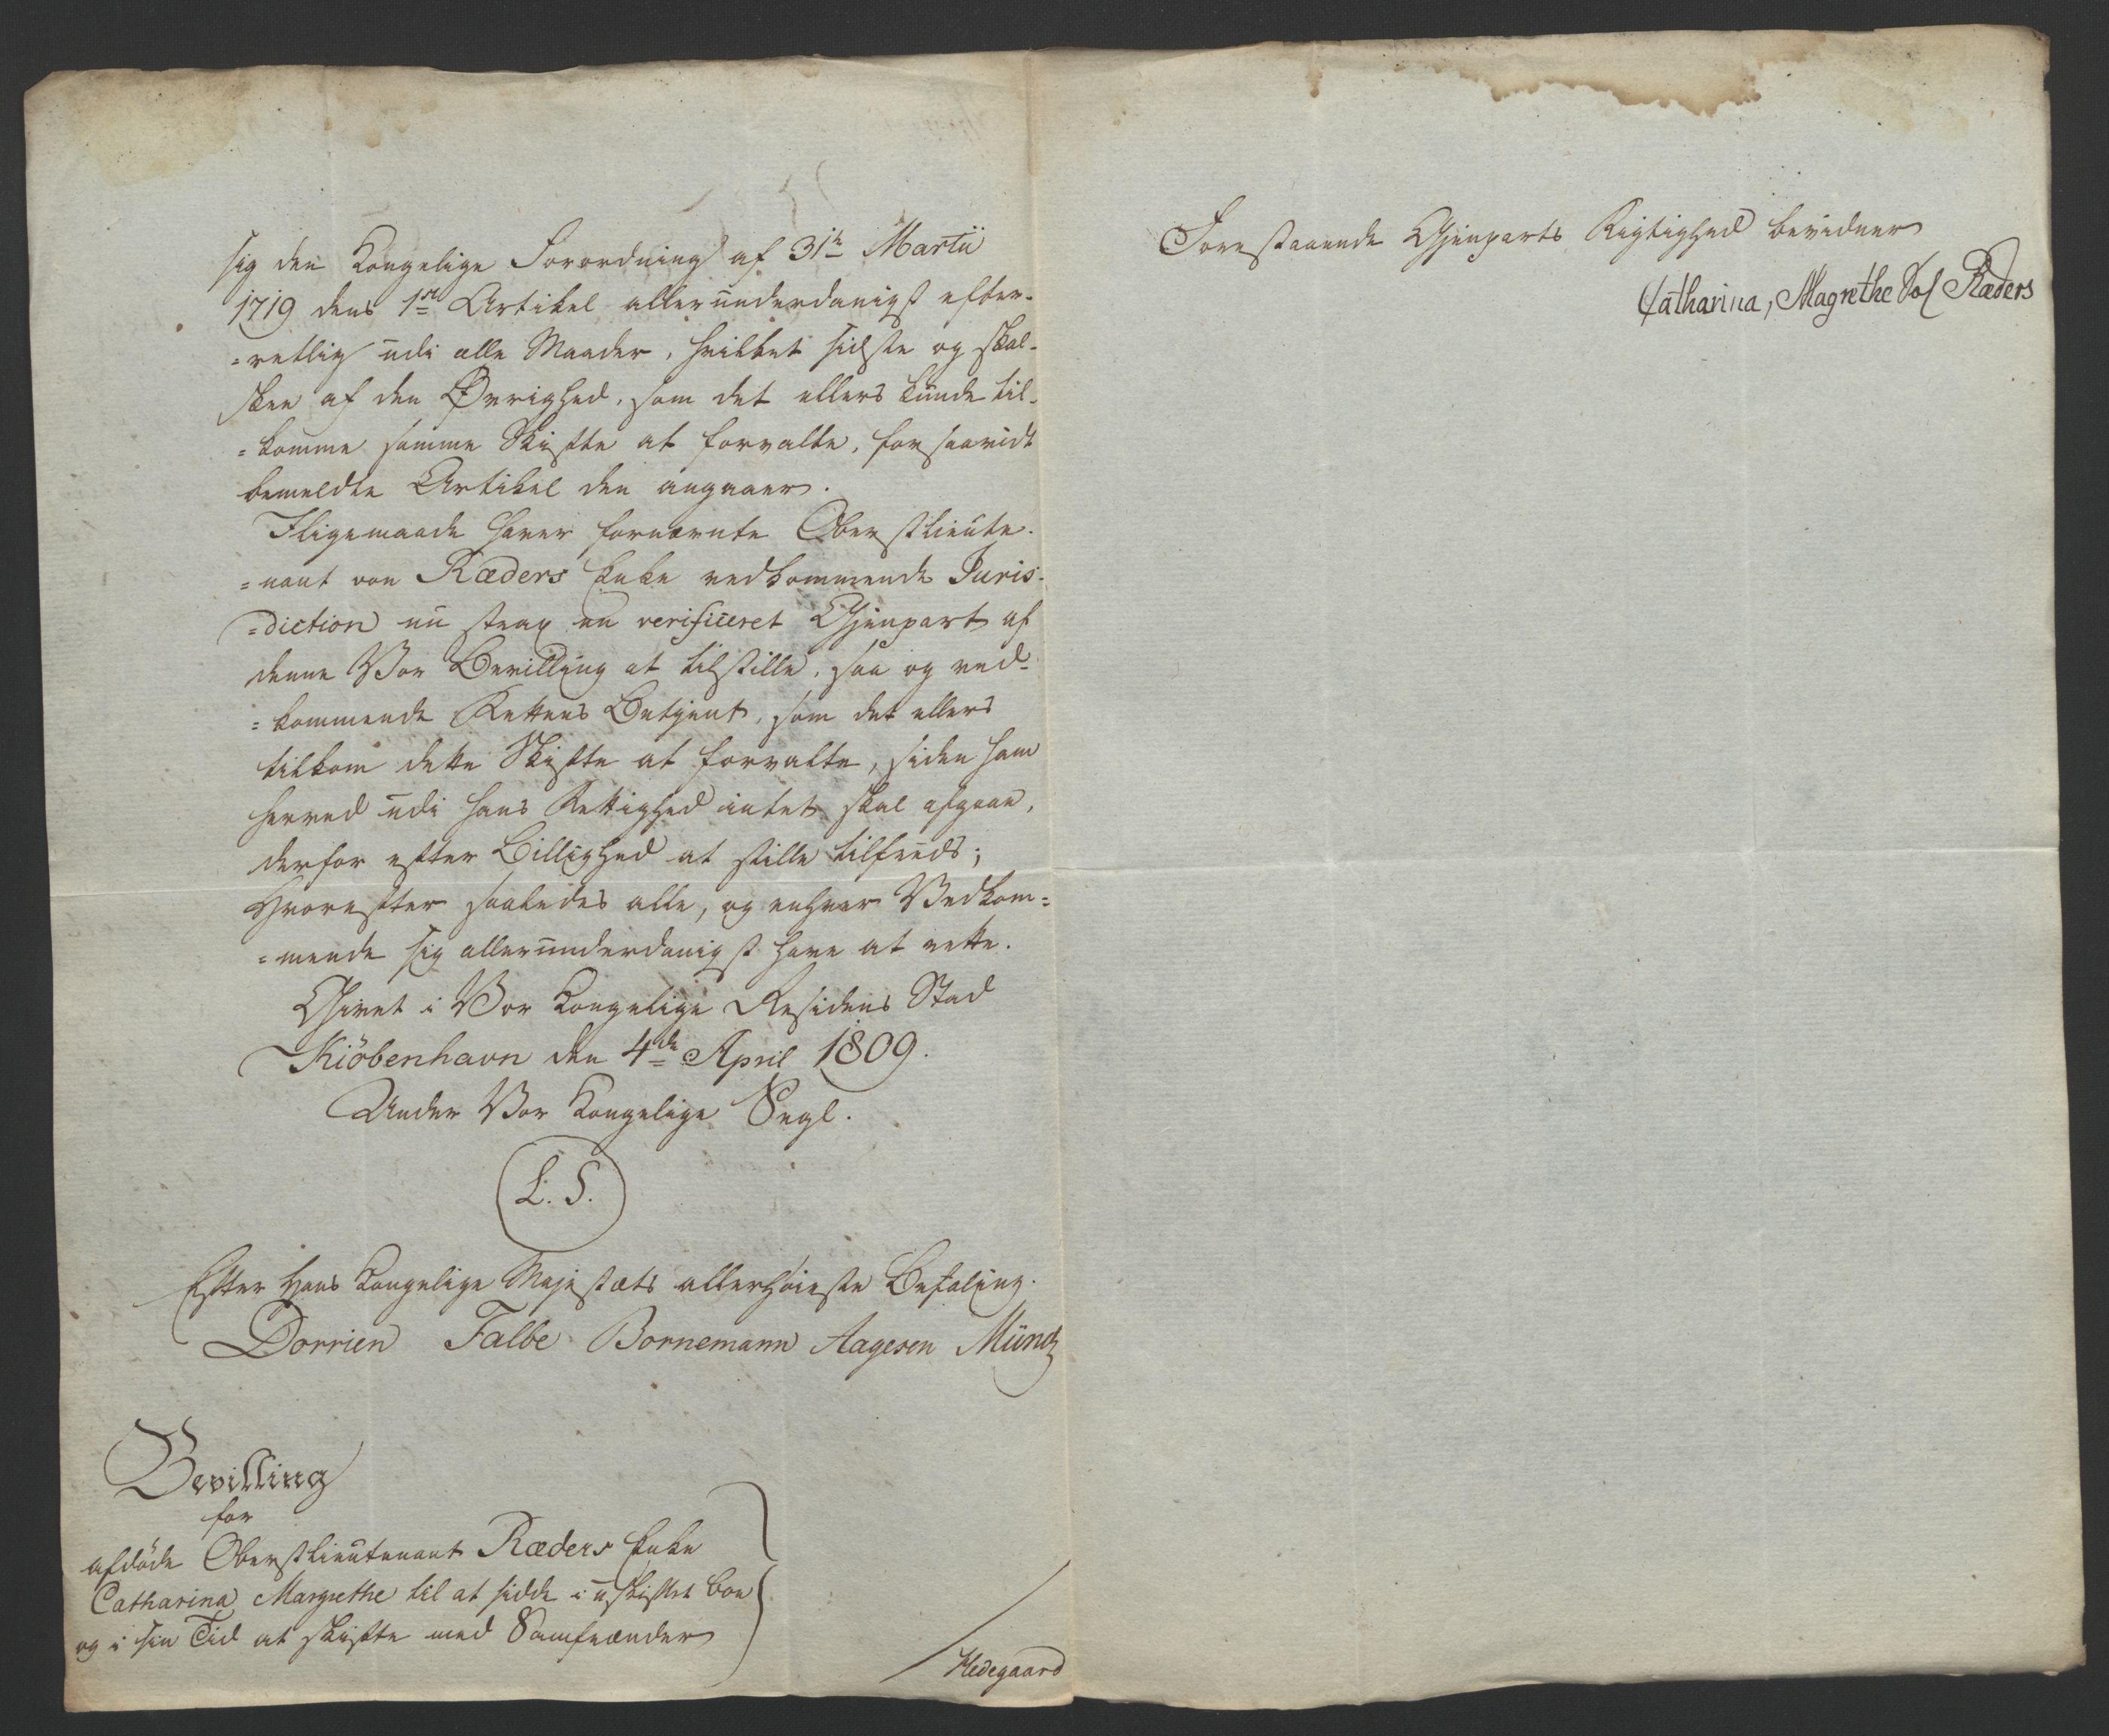 sig den Kongelige Forordning af 31te Martii
1719 dens 1ste Artikel allerunderdanigst efter-
=retlig udi alle Maader, hvilket sidste og skal
skee af den Øvrighed, som det ellers kunde til-
=komme samme Skifte at forvalte, forsaavidt
bemeldte Artikel den angaaer.
Iligemaade haver fornævnte Oberstlieute-
=nant von Ræders Enke vedkommende Juris-
=diction nu strax en verificeret Gjenpart af
denne Vor Bevilling at tilstille, saa og ved-
=kommende Rettens Betjent, som det ellers
tilkom dette Skifte at forvalte, siden ham
herved udi hans Rettighed intet skal afgaae,
derfor efter Billighed at stille tilfreds;
Hvorefter saaledes alle, og enhver Vedkom=
=mende sig allerunderdanigst have at rette.
Givet i Vor Kongelige Residens Stad
Kiöbenhavn den 4de April 1809.
Under Vor Kongelige Segl.
L. S.
Efter Hans Kongelige Majestæts allerhöieste Befaling.
Dorrien Falbe Bornemann Aagesen Münch
Bevilling
for
afdöde Oberstlieutenant Ræders Enke
Catharina Margrethe til at sidde i uskiftet Boe
og i sin Tid at skifte med Samfrænder
Hedegaard
Forestaaende Gjenparts Rigtighed bevidner
Catharina, Magrethe Sal Ræders